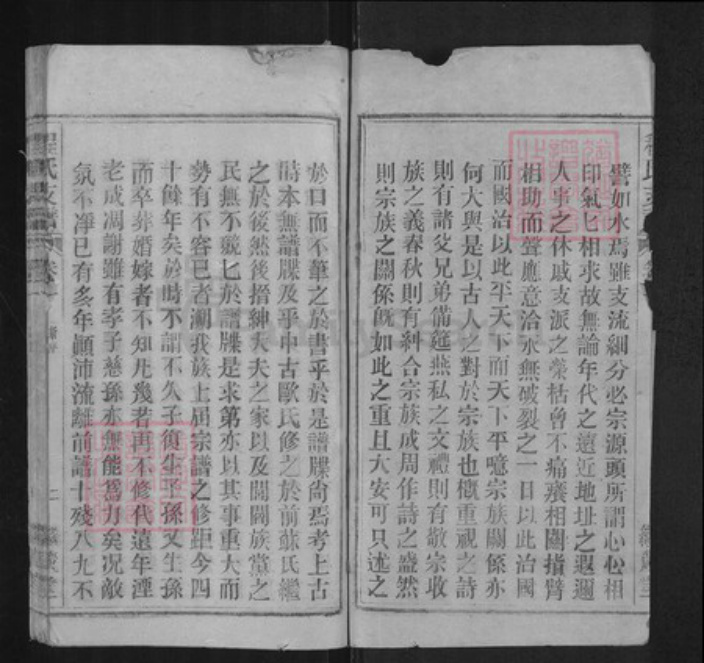 譬如水焉雖支流細分必宗源頭所謂心心相
印氣匕相求故無論年代之遠近地址之遐邇
人事之休戚支派之榮枯曾不痛癢相關指臂
相助而聲應意洽永無破裂之一日以此治國
而國治以此平天下而天下平噫宗族關係亦
何大與是以古人之對於宗族也概重視之詩
則有諸父兄弟備筵燕私之文禮則有敬宗收
族之義春秋則有糾合宗族成周作詩之盛然
則宗族之關係旣如此之重且大安可只述之
於口而不筆之於書乎於是譜牒尙焉考上古
時本無譜牒及乎中古歐氏修之於前蘇氏繼
之於後然後搢紳大夫之家以及閥閱族黨之
民無不兢匕於譜牒是求第亦以其事重大而
勢有不容已者溯我族上屆宗譜之修距今四
十餘年矣於時不謂不久子復生子孫又生孫
而卒葬婚嫁者不知凡幾若再不修代遠年湮
老成凋謝雖有孝子慈孫亦無能爲力矣况敵
氛不凈已有多年顚沛流離前譜十殘八九不
程氏支譜
卷